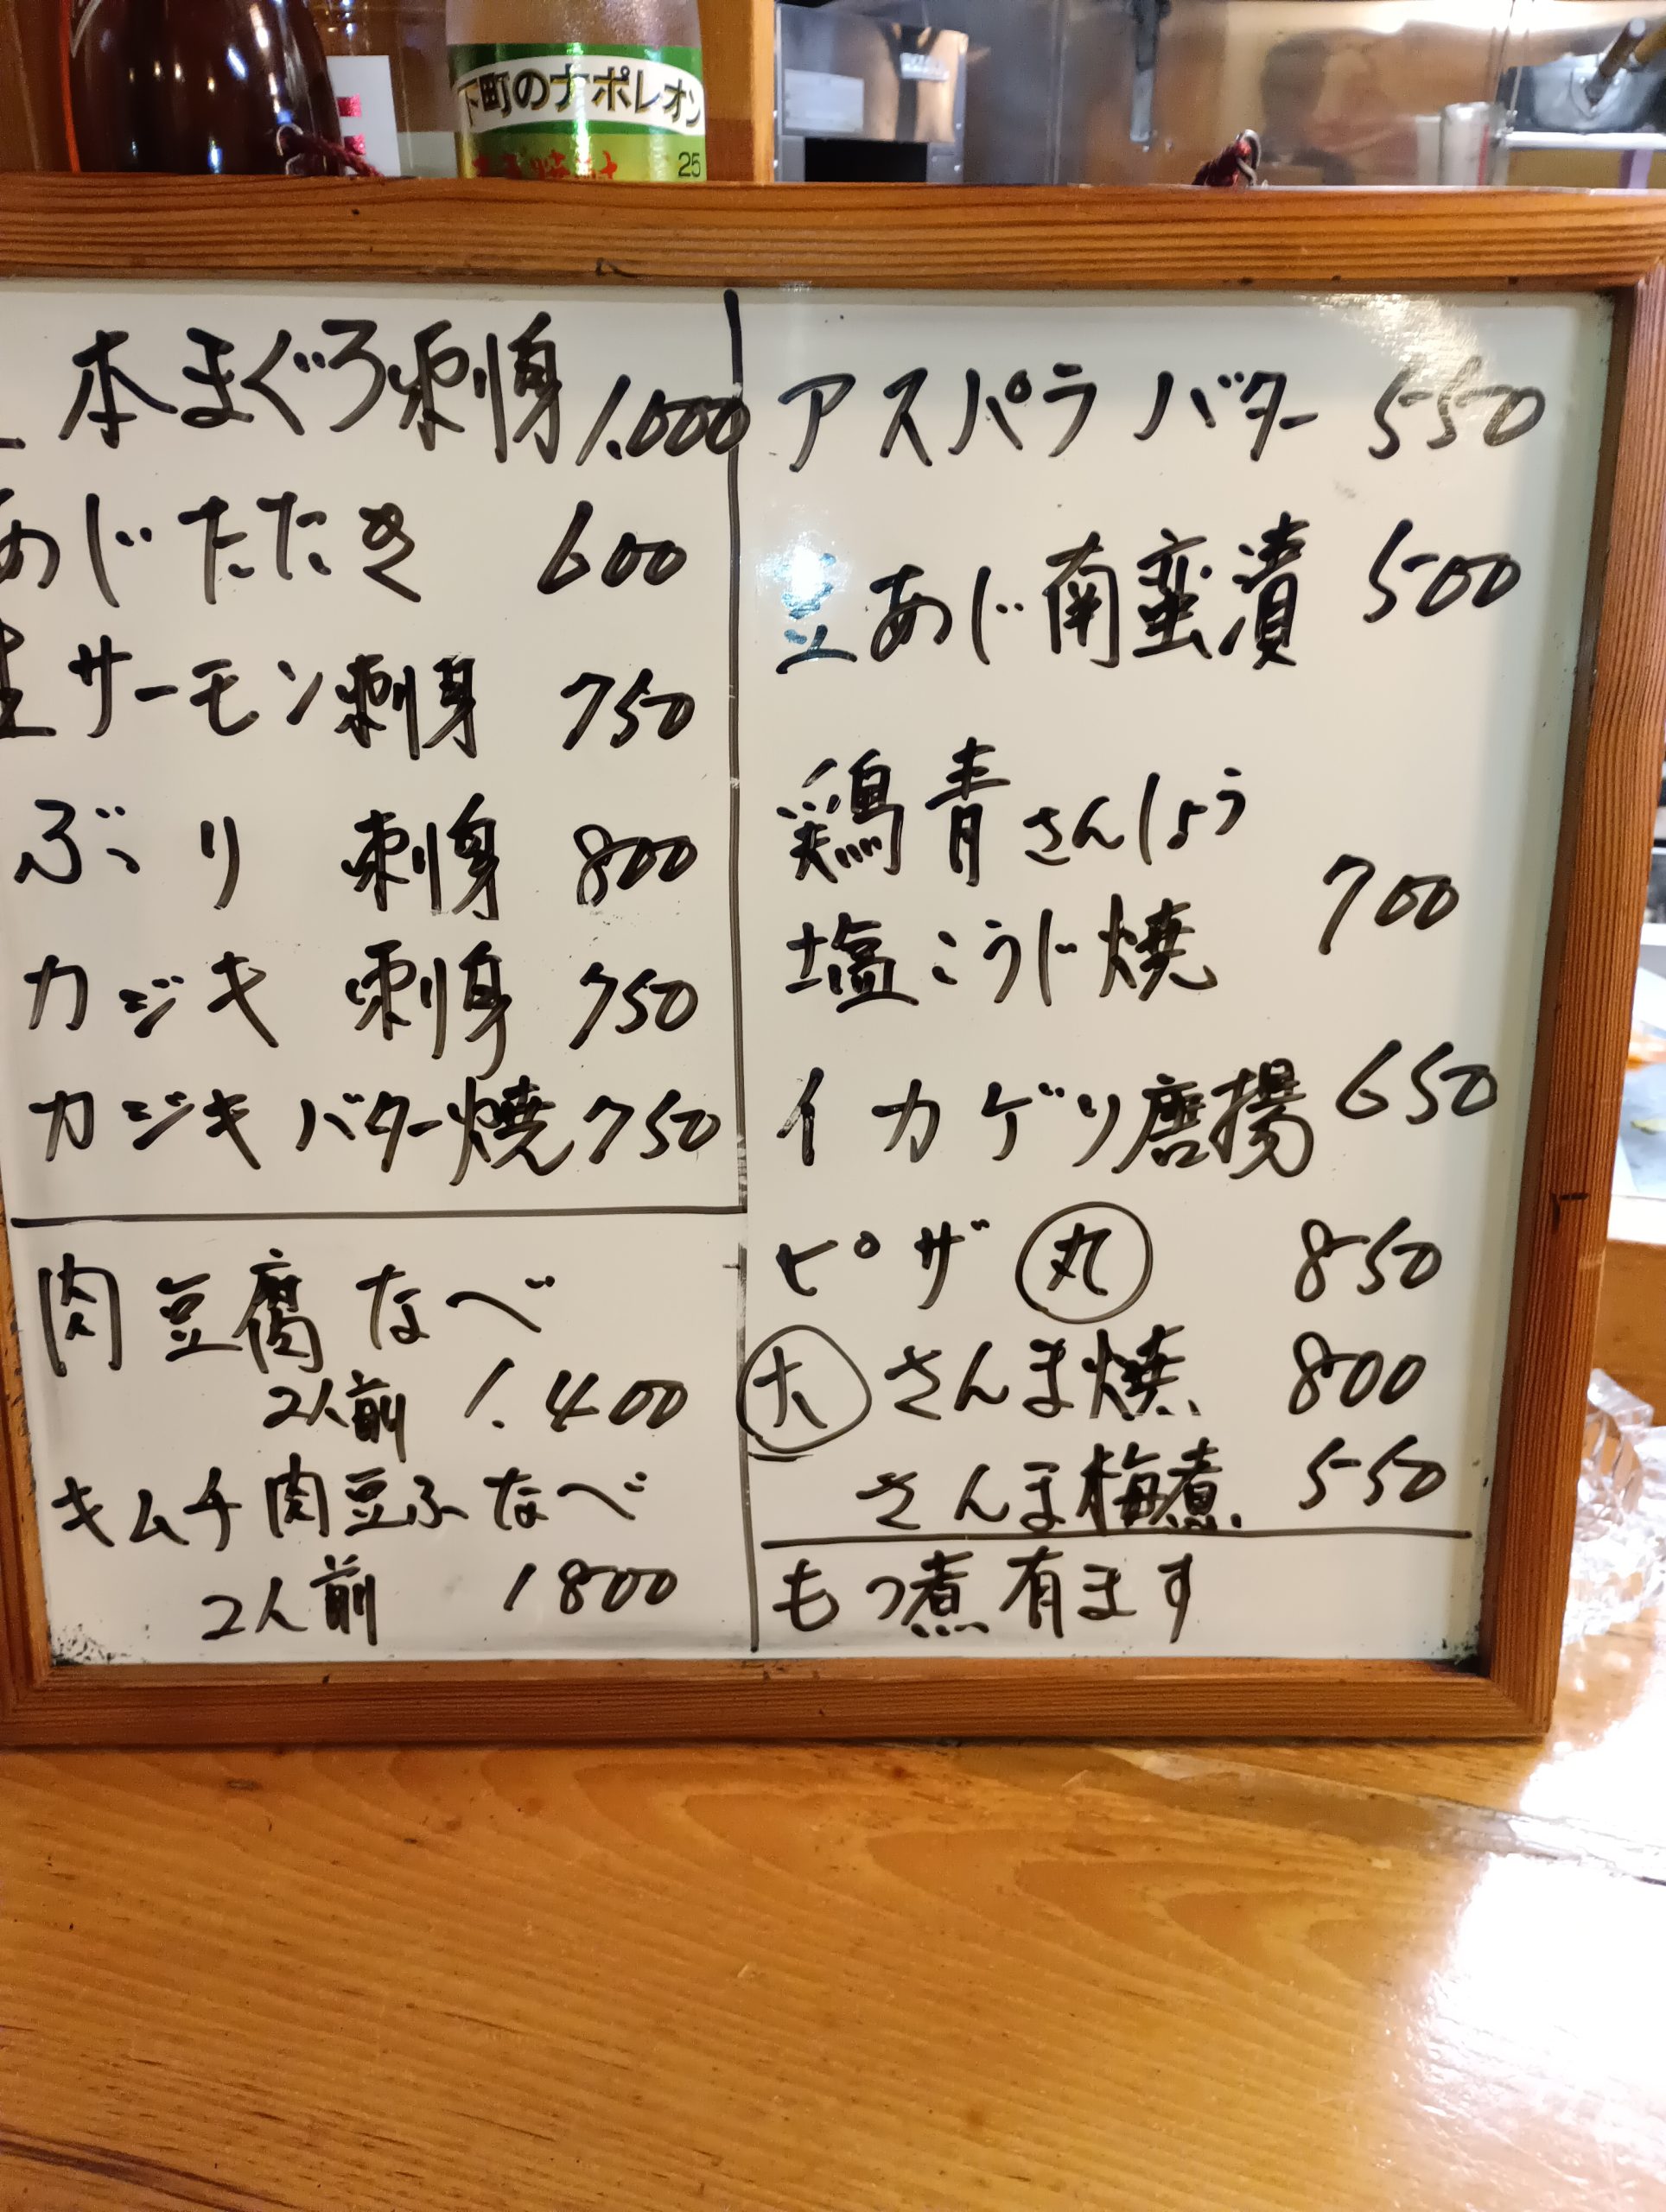 下町のナポレオン
25
本まぐろ刺身 1.000
あじたたき 600
生サーモン刺身 750
ぶり 刺身 800
カジキ 刺身 750
カジキバター焼 750
肉豆腐なべ
2人前 1.400
キムチ肉豆ふなべ
2人前 1800
アスパラバター 550
豆あじ南蛮漬 500
鶏青さんしょう
塩こうじ焼 700
イカゲソ唐揚 650
ピザ 丸 850
大 さんま焼 800
さんま梅煮 550
もつ煮有ます